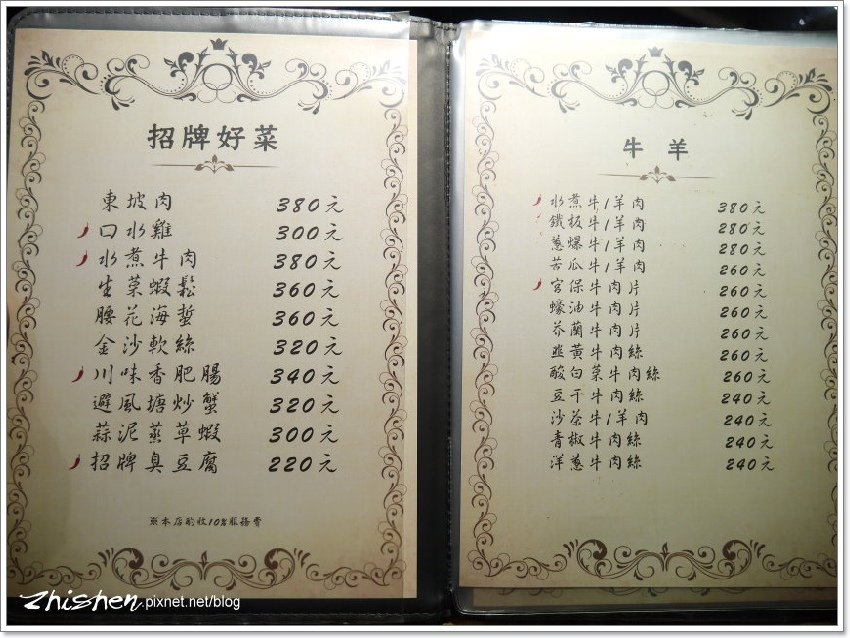 招牌好菜
東坡肉 380元
口水雞 300元
水煮牛肉 380元
生菜蝦鬆 360元
腰花海蜇 360元
金沙軟絲 320元
川味香肥腸 340元
避風塘炒蟹 320元
蒜泥蒸草蝦 300元
招牌臭豆腐 220元
※本店酌收10%服務費
牛羊
水煮牛/羊肉 380元
鐵板牛/羊肉 280元
蔥爆牛/羊肉 280元
苦瓜牛/羊肉 260元
宮保牛肉片 260元
蠔油牛肉片 260元
芥蘭牛肉片 260元
韭黃牛肉絲 260元
酸白菜牛肉絲 260元
豆干牛肉絲 240元
沙茶牛/羊肉 240元
青椒牛肉絲 240元
洋蔥牛肉絲 240元
zhishen.pixnet.net/blog